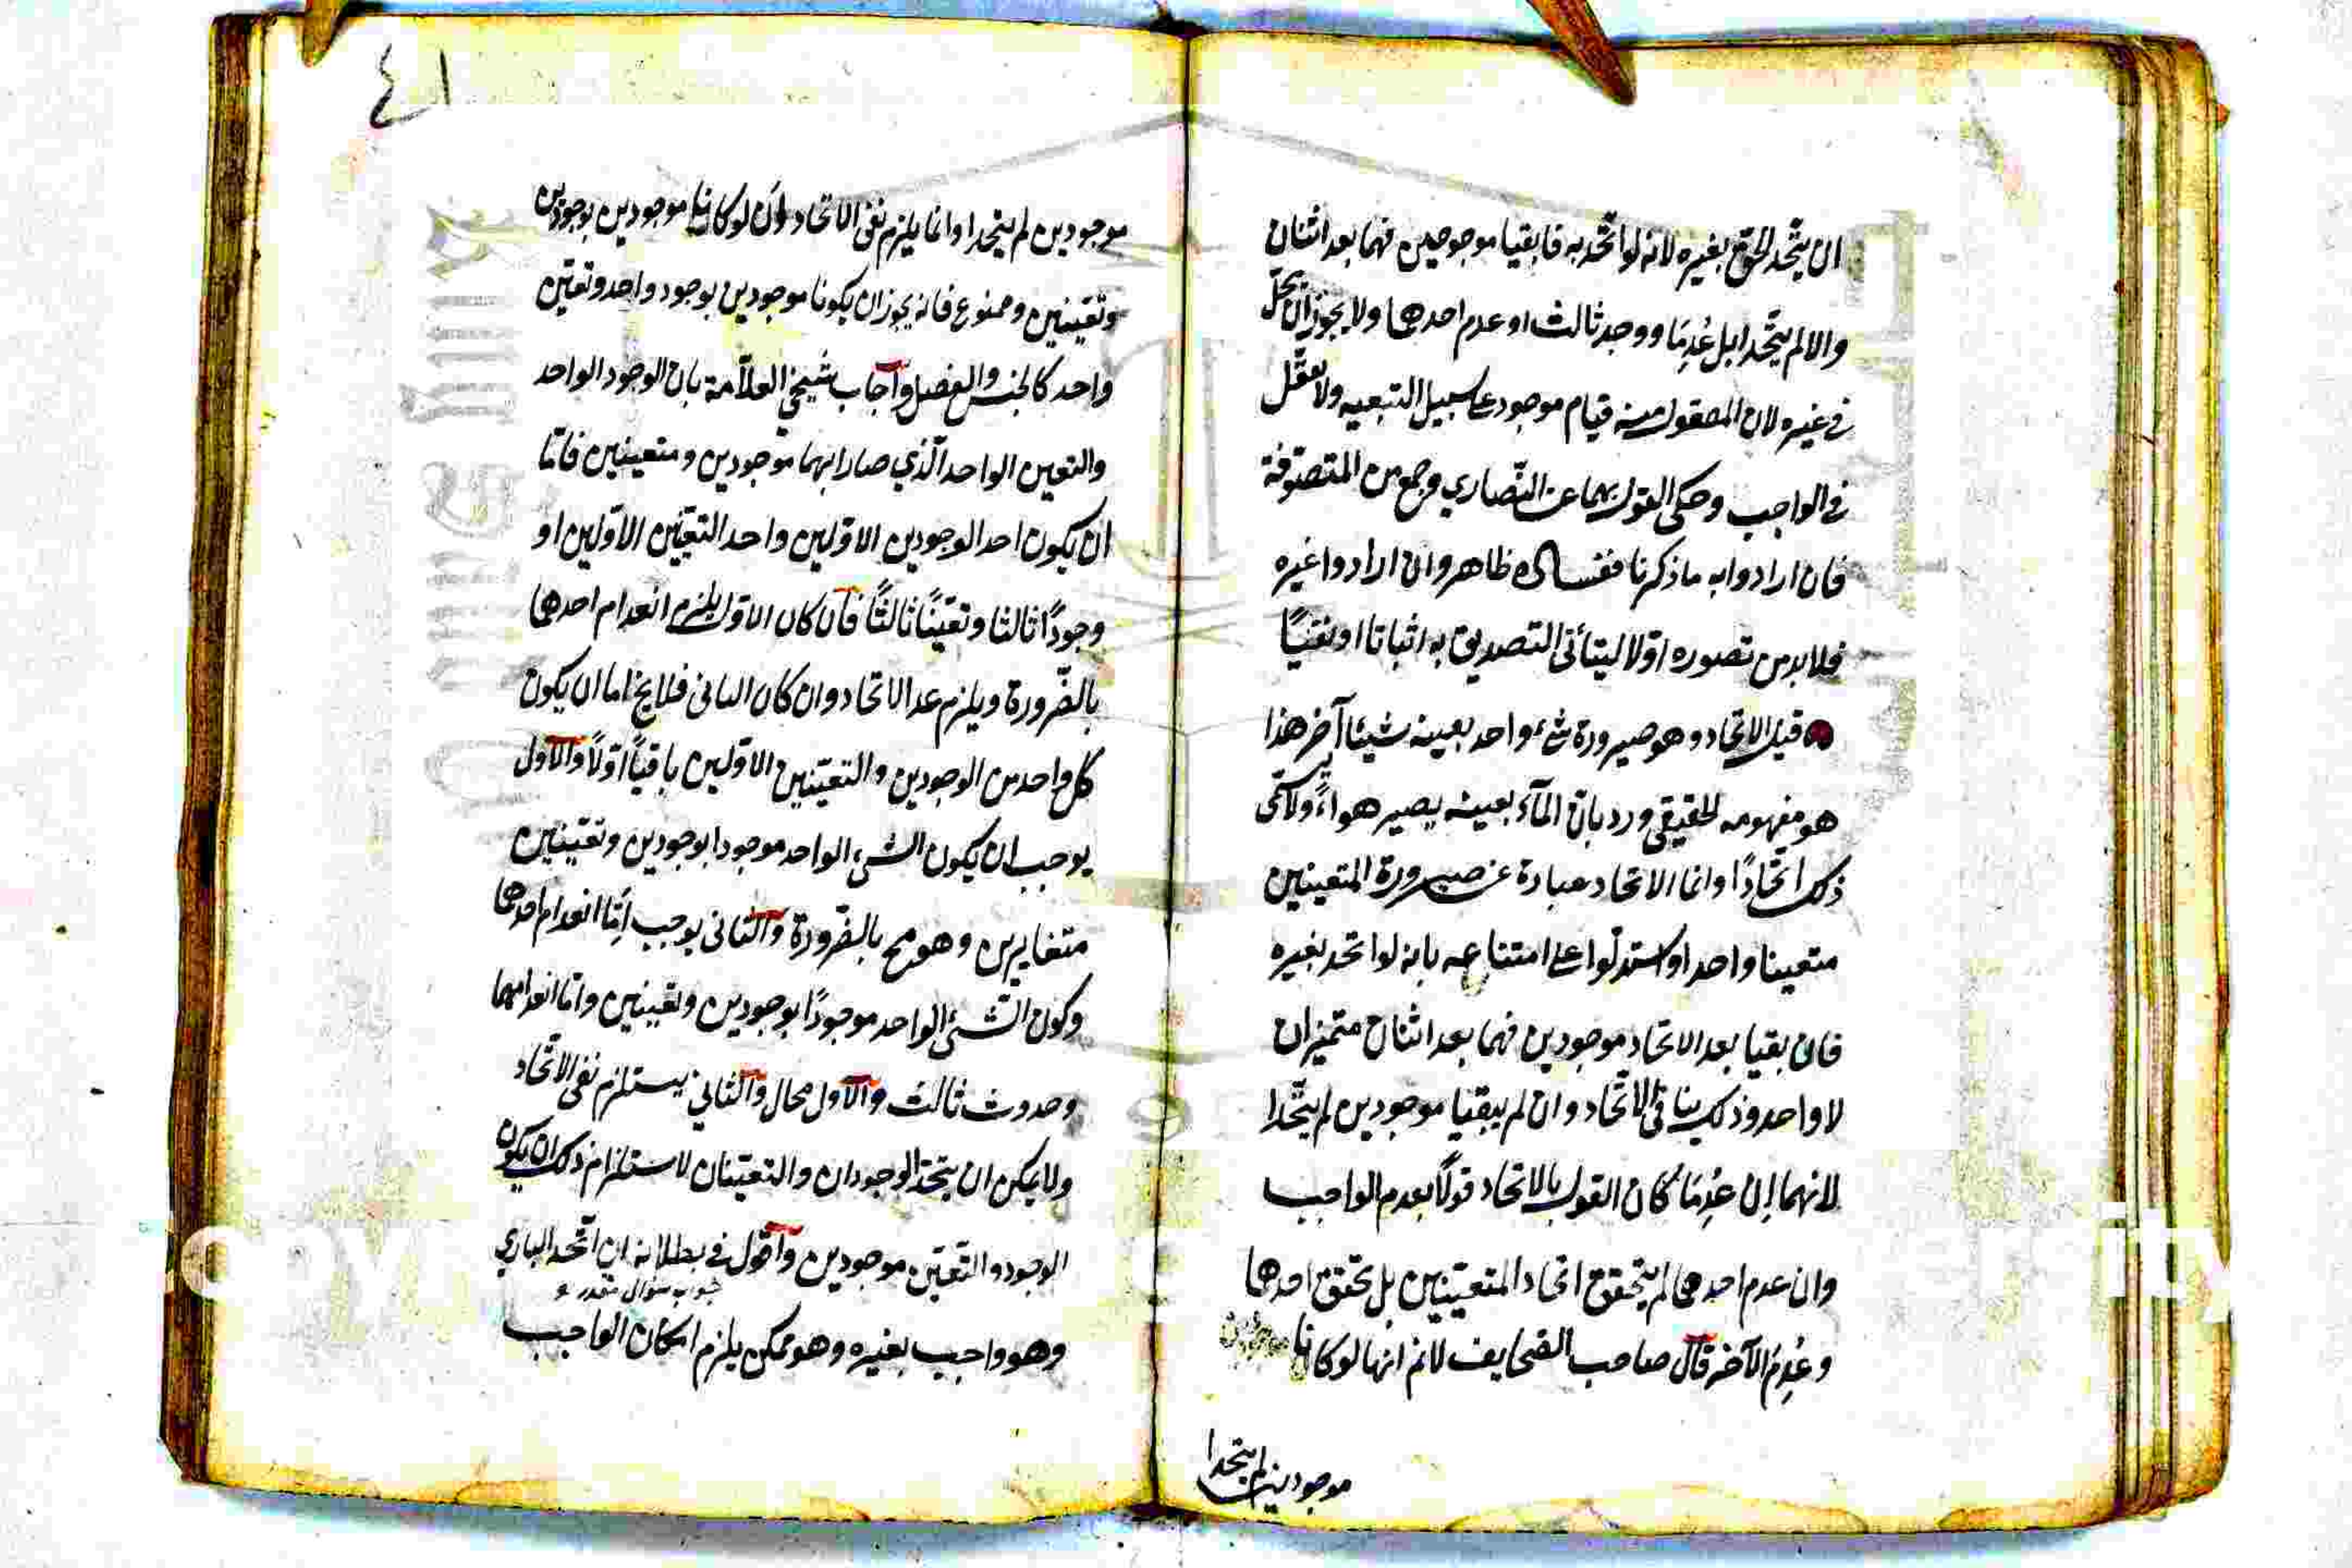 ان يتّحد الحق بغيره لانه لو اتّحد به فابقيا موجودين فهما بعد اثنان
والا لم يتّحدا بل عُدِمَا ووجد ثالث او عدم احدهما ولا يجوز ان يحلّ
في غيره لان المعقول منه قيام موجود على سبيل التبعيه ولا تعقّل
في الواجب وحكى القول بهما عن النّصارى وجمع من المتصوّفة
فان ارادوا به ما ذكرنا ففساده ظاهر وان ارادوا غيره
فلا بد من تصوره اوّلا ليتأتى التصديق به اثباتا او نفيًا
قيل الاتحاد وهو صيرورة شئ واحد بعينه شيئا آخر هذا
هو مفهومه الحقيقي ورد بانّ المآء بعينه يصير هواءً ولا يسمّى
ذلك اتّحادًا وانما الاتحاد عبارة عن صيرورة المتعينين
متعينا واحدا واستدلّوا على امتناعه بانه لو اتحد بغيره
فان بقيا بعد الاتحاد موجودين فهما بعد اثنان متميزان
لا واحد وذلك ينافى الاتّحاد وان لم يبقيا موجودين لم يتّحدا
لانهما إن عُدِمَا كان القول بالاتحاد قولًا بعدم الواجب
وان عدم احدهما لم يتحقق اتحاد المتعيّنين بل تحقق احدهما
وعُدِمَ الآخر قال صاحب الصحايف لانم انهما لو كانا
موجودين لم يتحدا
٤١
موجودين لم يتحدا وانما يلزم نفى الاتحاد وان لو كانا موجودين بوجودين
وتعيّنين وممنوع فانه يجوز ان يكونا موجودين بوجود واحد وتعيّن
واحد كالجنس والفصل وأجاب شيخي العلاّمة بان الوجود الواحد
والتعين الواحد الّذي صارا بهما موجودين ومتعينين فامّا
ان يكون احد الوجودين الاوّلين واحد التعيّنين الاوّلين او
وجودًا ثالثا وتعيّنًا ثالثًا فان كان الاوّل يلزم انعدام احدهما
بالضّرورة ويلزم عدم الاتحاد وان كان الثانى فلا يخ اما ان يكون
كل واحد من الوجودين والتعيّنين الاوّلين باقيًا اوّلًا والاول
يوجب ان يكون الشيء الواحد موجودا بوجودين وتعيّنين
متغايرين وهو مح بالضّرورة والثانى يوجب امّا انعدام احدهما
وكون الشّئ الواحد موجودًا بوجودين وتعينين وامّا انعدامهما
وحدوث ثالث والاول محال والثاني يستلزم نفى الاتّحاد
ولا يمكن ان يتحد الوجودان والتعيّنان لاستلزام ذلك ان يكون
الوجود والتّعيّن موجودين واقول في بطلانه ان اتّحد الباري
جواب سؤال مقدر
وهو واجب بغيره وهو ممكن يلزم امكان الواجب